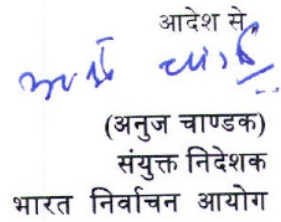 आदेश से,
(अनुज चाण्डक)
संयुक्त निदेशक
भारत निर्वाचन आयोग